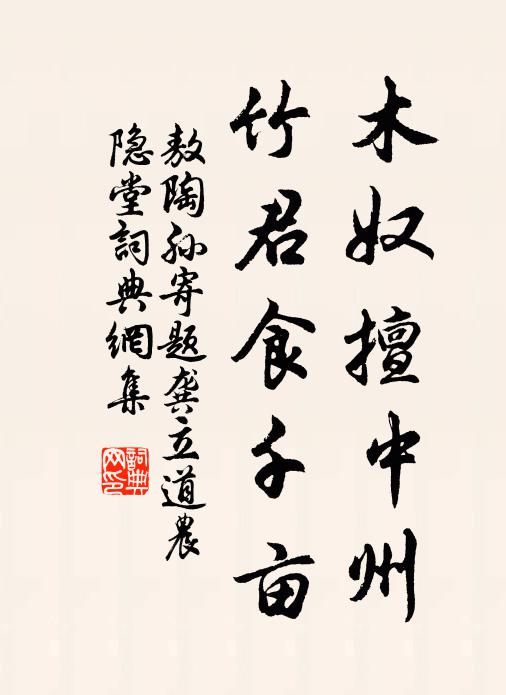 木奴擅中州
竹君食千亩
敖陶孙寄题龚立道农
隐堂詞典網集
詞典
网印